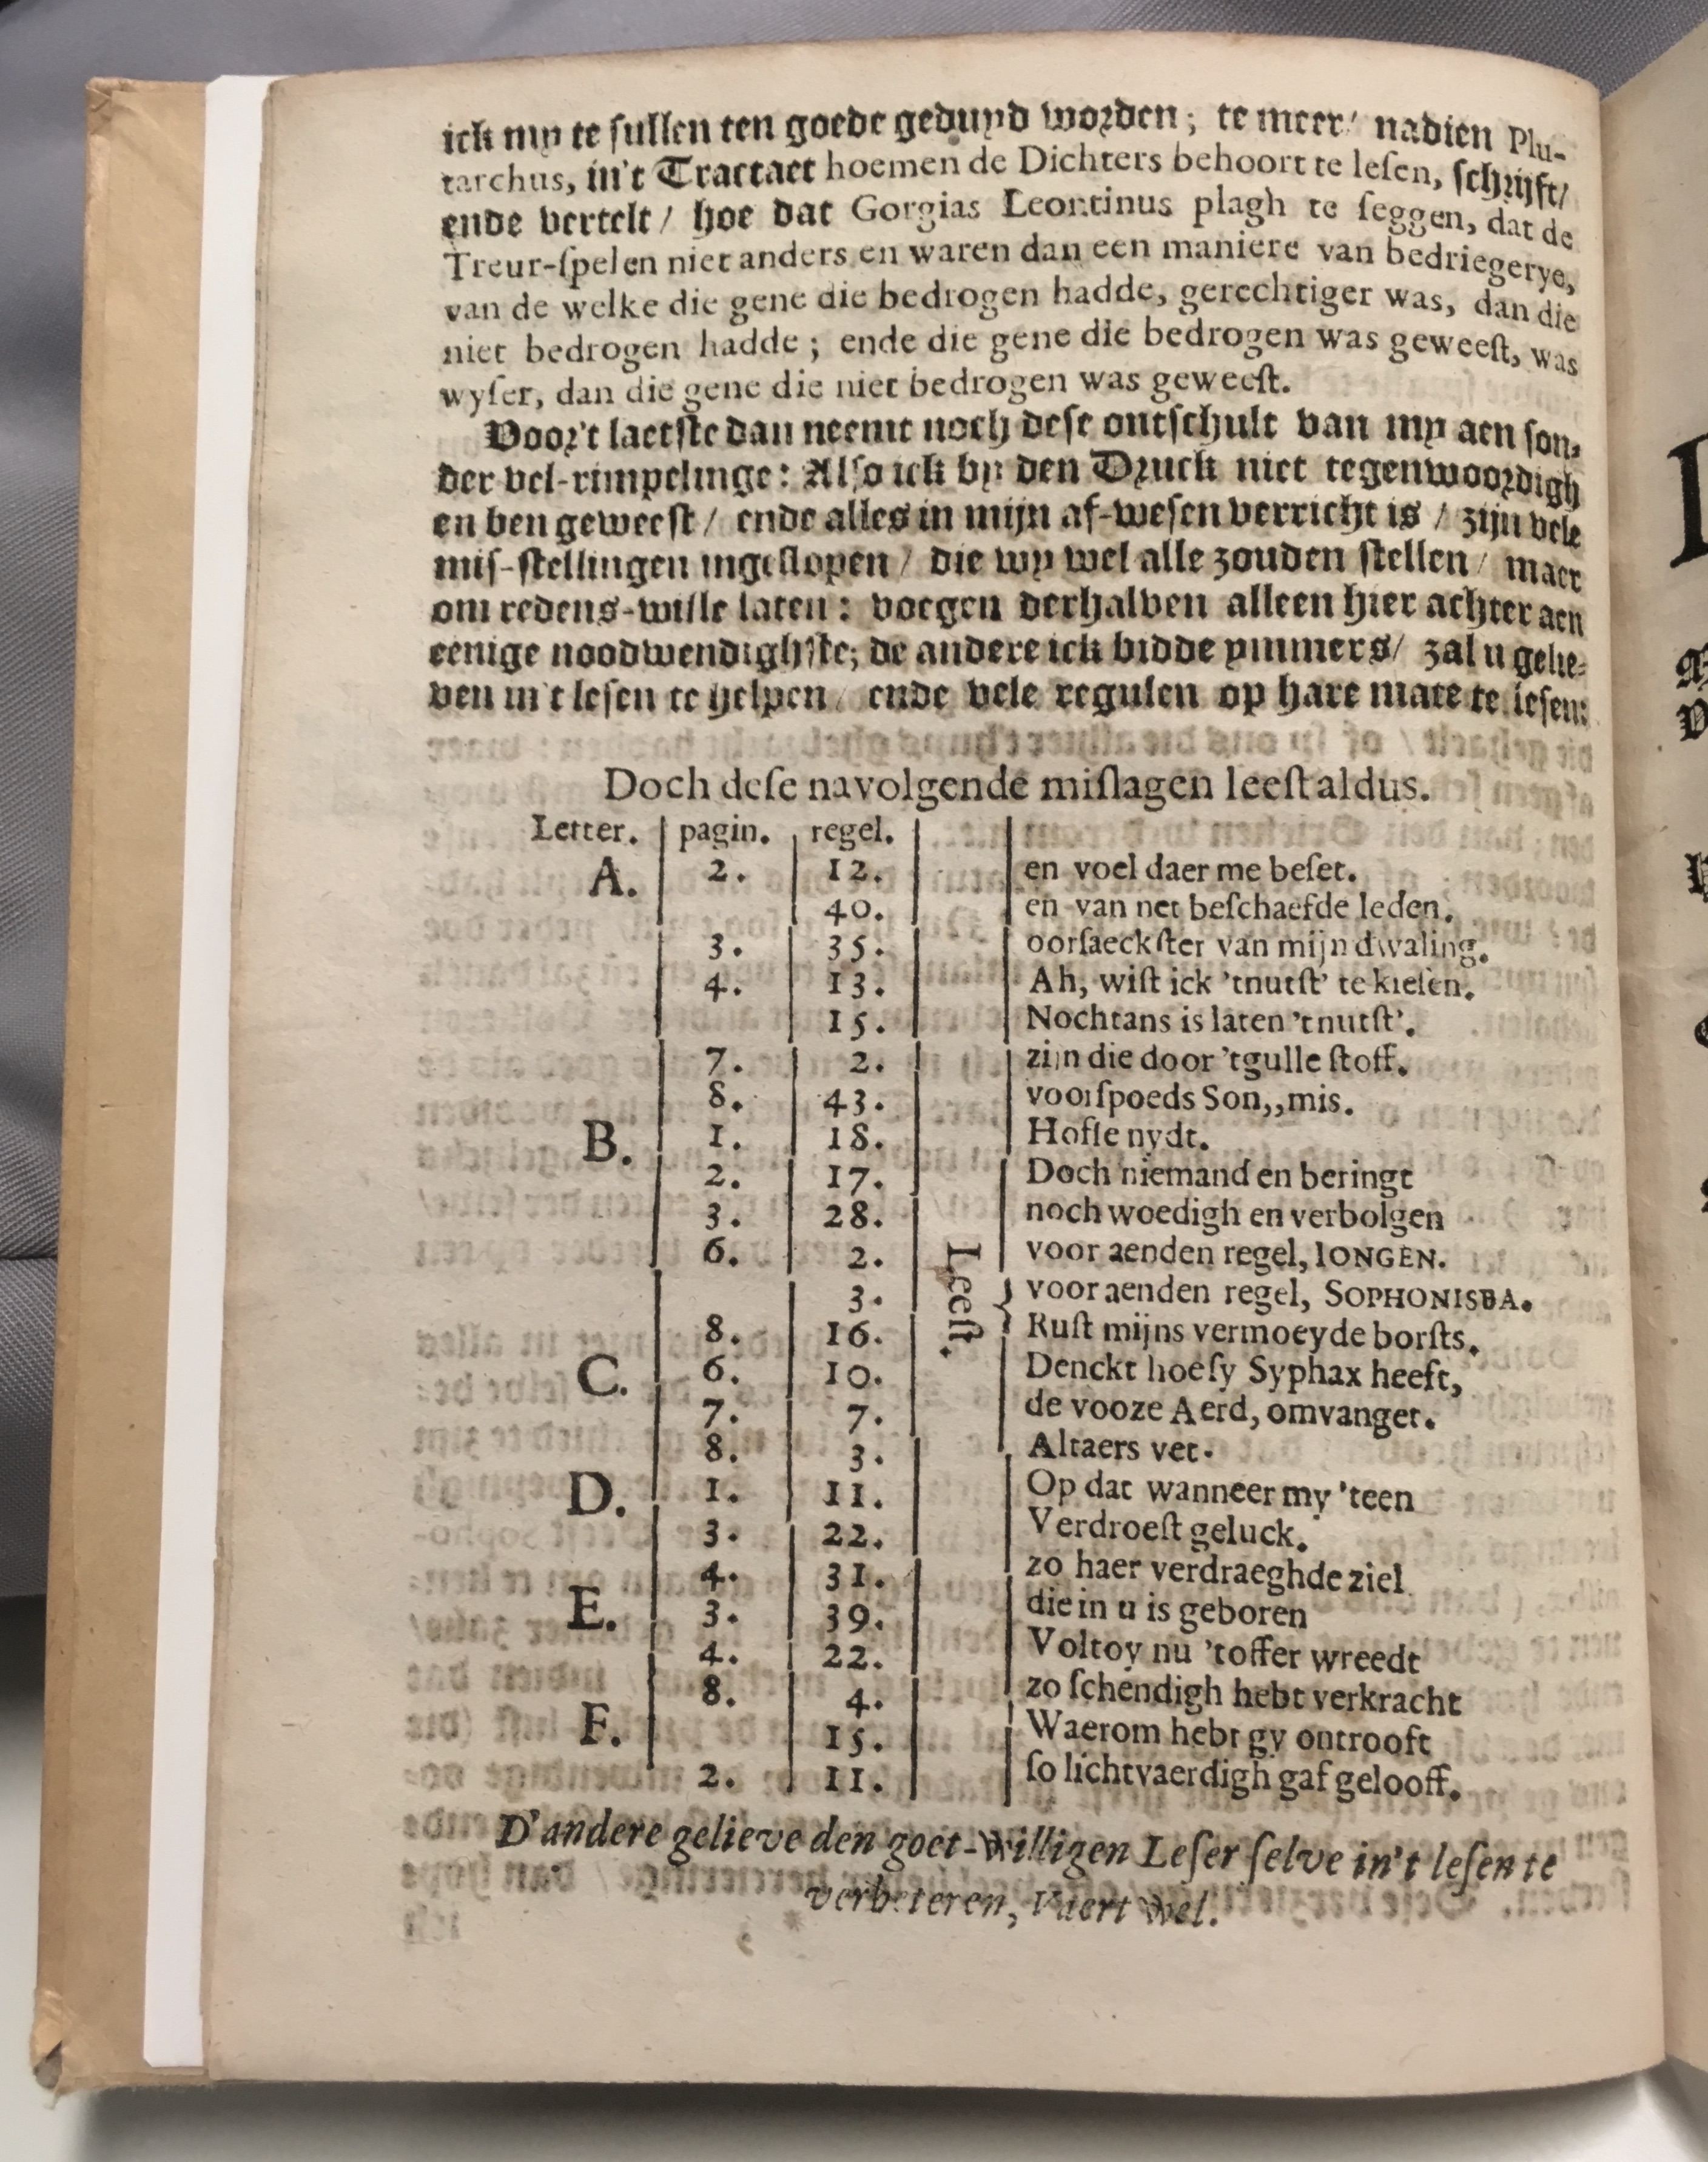 ick my te sullen ten goede geduyd worden; te meer/ nadien Plu-
tarchus, in't Tractaet hoemen de Dichters behoort te leſen, schrijft/
ende vertelt / hoe dat Gorgias Leontinus plagh te ſeggen, dat de
Treur-ſpelen niet anders en waren dan een maniere van bedriegerye,
van de welke die gene die bedrogen hadde, gerechtiger was, dan die
niet bedrogen hadde; ende die gene die bedrogen was geweeſt, was
wyſer, dan die gene die niet bedrogen was geweeſt.
Voor't laetste dan neemt noch dese ontschult van my aen son-
der vel-rimpelinge: Also ick by den Druck niet tegenwoordigh
en ben geweest / ende alles in mijn af-wesen verricht is / zijn vele
mis-stellingen ingeslopen / die wy wel alle zouden stellen / maer
om redens-wille laten: voegen derhalven alleen hier achter aen
eenige noodwendighste; de andere ick bidde ymmers/ zal u gelie-
ven in't lesen te helpen/ ende vele regulen op hare mate te lesen:
Doch deſe navolgende miſlagen leeſt aldus.
Letter. pagin. regel.
A. 2. 12. en voel daer me beſet.
40. en van net beſchaefde leden.
3. 35. oorſaeckſter van mijn dwaling.
4. 13. Ah, wiſt ick 'tnutſt' te kieſen.
15. Nochtans is laten 'tnutſt'.
7. 2. zijn die door 'tgulle ſtoff.
8. 43. voorſpoeds Son,,mis.
B. 1. 18. Hofſe nydt.
2. 17. Doch niemand en beringt
3. 28. noch woedigh en verbolgen
6. 2. voor aenden regel, IONGEN.
3. voor aenden regel, SOPHONISBA.
Leeſt.
8. 16. Ruſt mijns vermoeyde borſts.
C. 6. 10. Denckt hoeſy Syphax heeft,
7. 7. de vooze Aerd, omvanget.
8. 3. Altaers vet.
D. 1. 11. Op dat wanneer my 'teen
3. 22. Verdroeſt geluck.
4. 31. zo haer verdraeghde ziel
E. 3. 39. die in u is geboren
4. 22. Voltoy nu 'toffer wreedt
8. 4. zo ſchendigh hebt verkracht
F. 15. Waerom hebt gy ontrooft
2. 11. ſo lichtvaerdigh gaf gelooff.
D'andere gelieve den goet-willigen Leſer ſelve in't leſen te
verbeteren, Vaert wel.